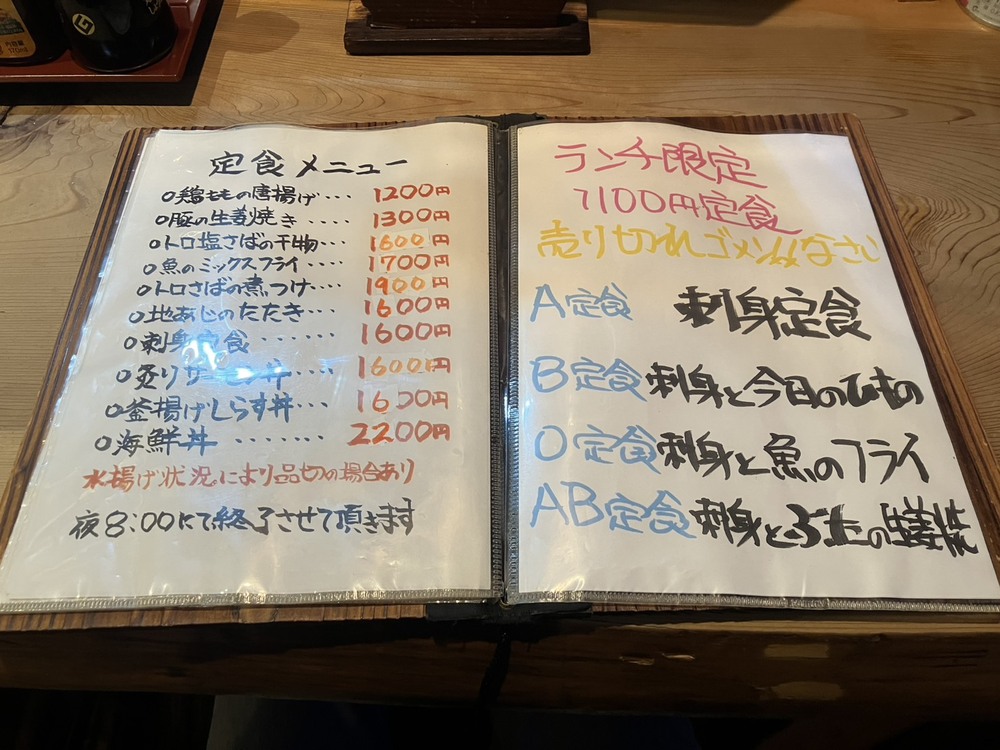 定食メニュー
○鶏ももの唐揚げ････ 1200円
○豚の生姜焼き ･････ 1300円
○トロ塩さばの干物･･･ 1600円
○魚のミックスフライ････ 1700円
○トロさばの煮つけ･･･ 1900円
○地あじのたたき････ 1600円
○刺身定食 ･･･････ 1600円
○炙りサーモン丼･･ 1600円
○釜揚げしらす丼･･･ 1600円
○海鮮丼 ････････ 2200円
水揚げ状況により品切の場合あり
夜8:00にて終了させて頂きます
ランチ限定
1100円定食
売り切れゴメンなさい
A定食 刺身定食
B定食 刺身と今日のひもの
O定食 刺身と魚のフライ
AB定食 刺身とぶたの生姜焼